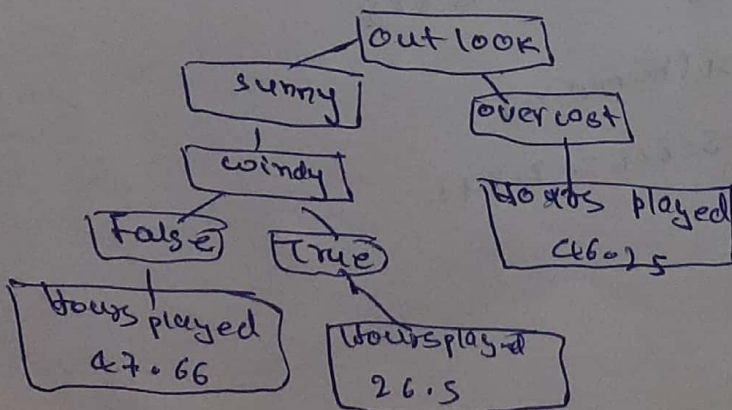 outlook
sunny
overcost
windy
Hours played
46.25
False
True
Hours played
47.66
Hours played
26.5